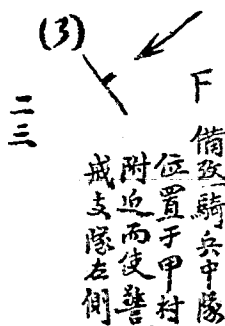 (3)
F
備攷一騎兵中隊
位置于甲村
附近而使警
戒支隊左側
二三